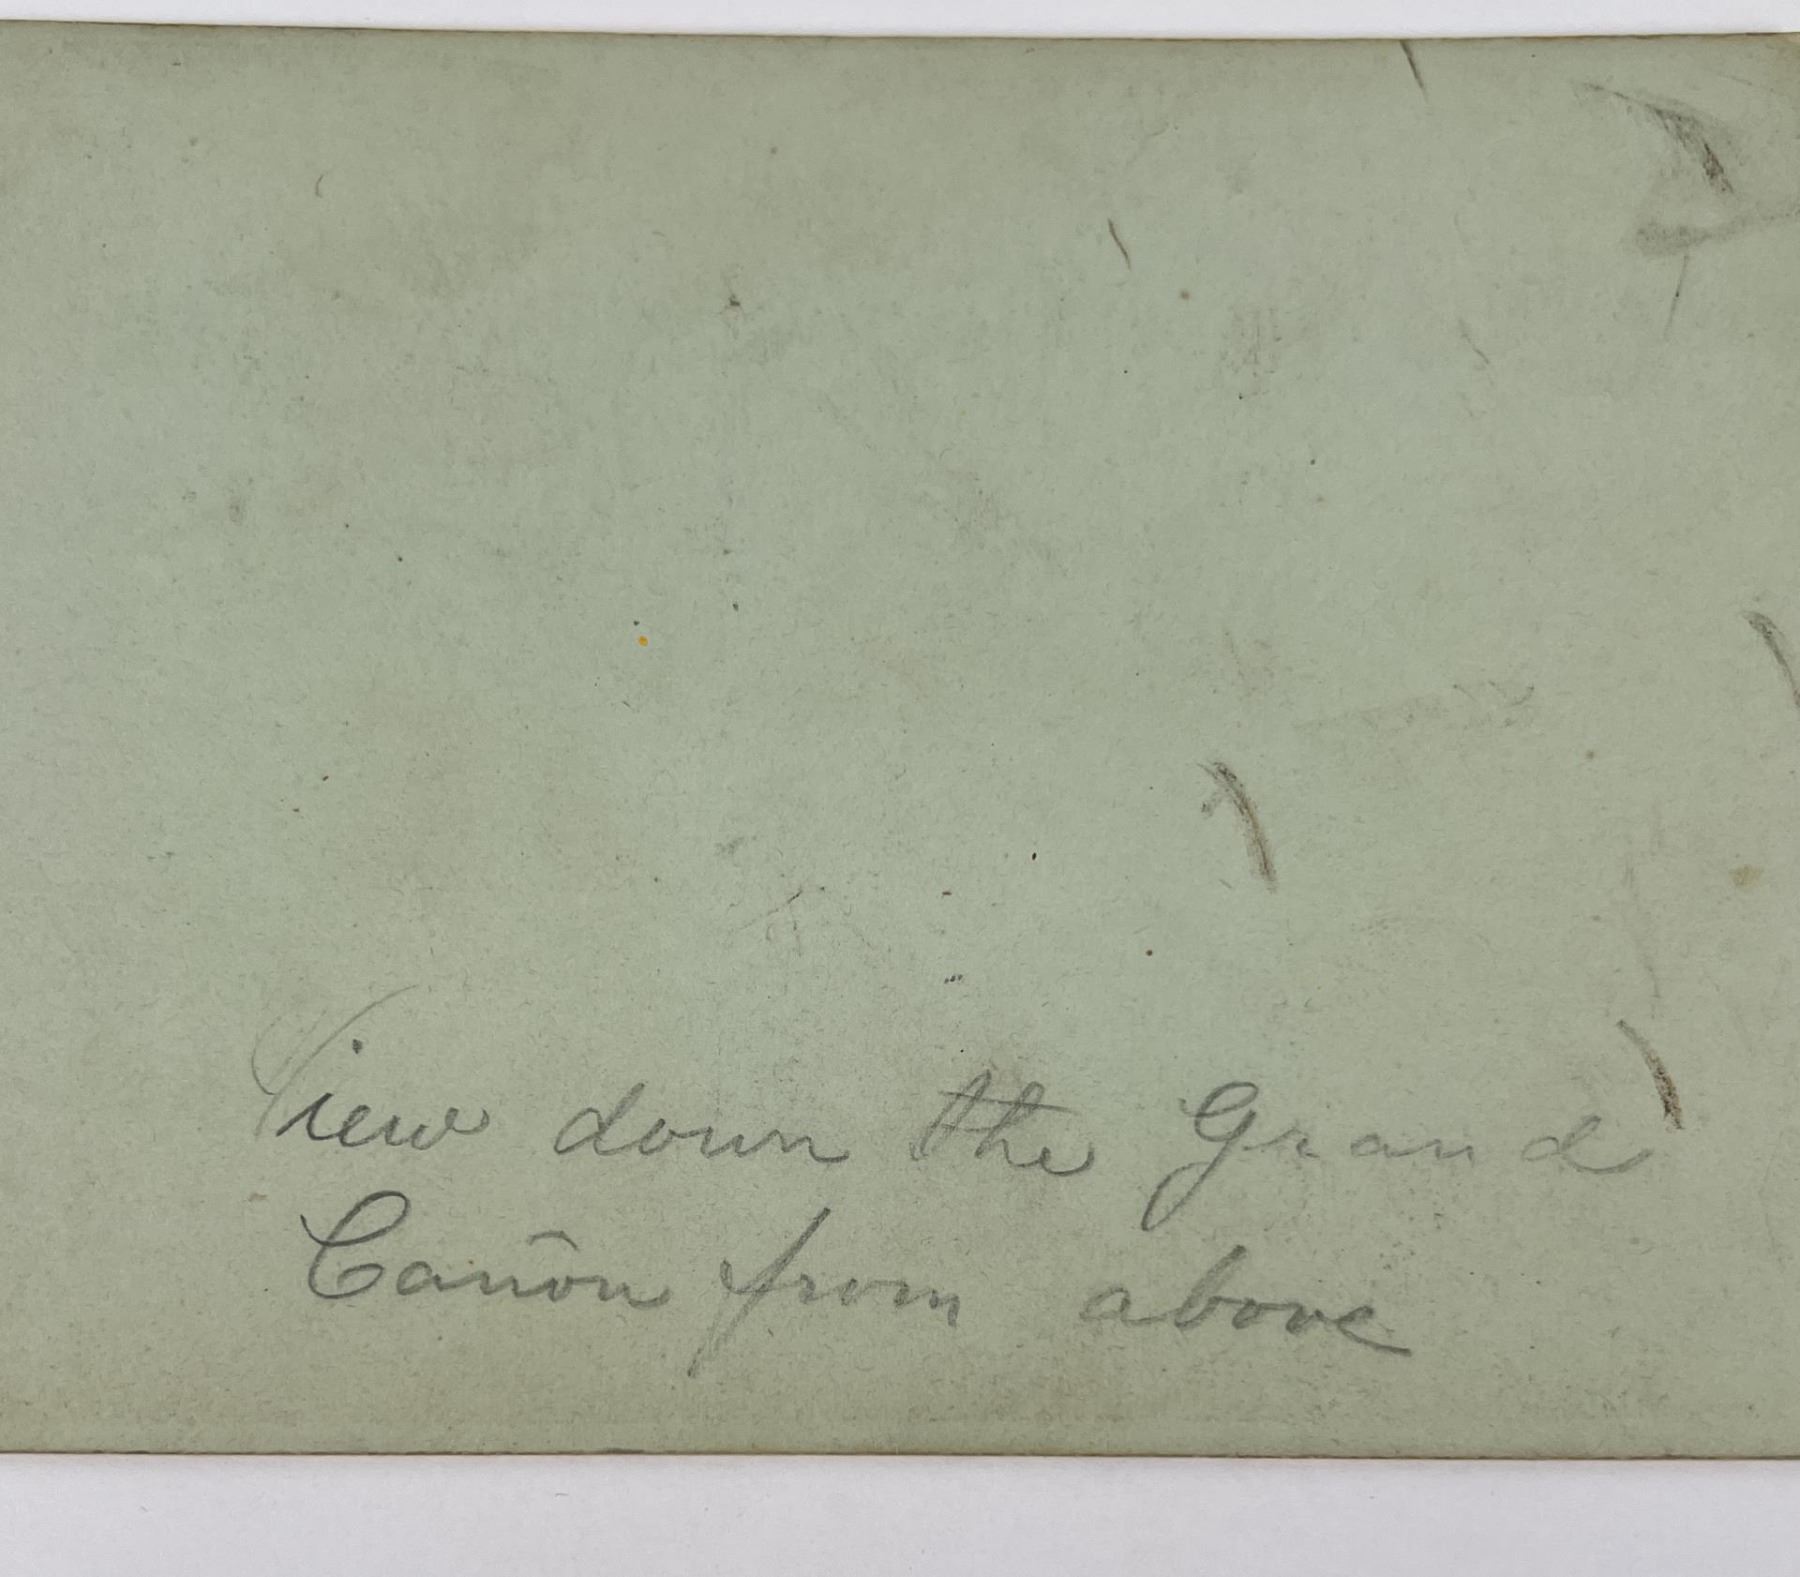 View down the Grand
Cañon from above